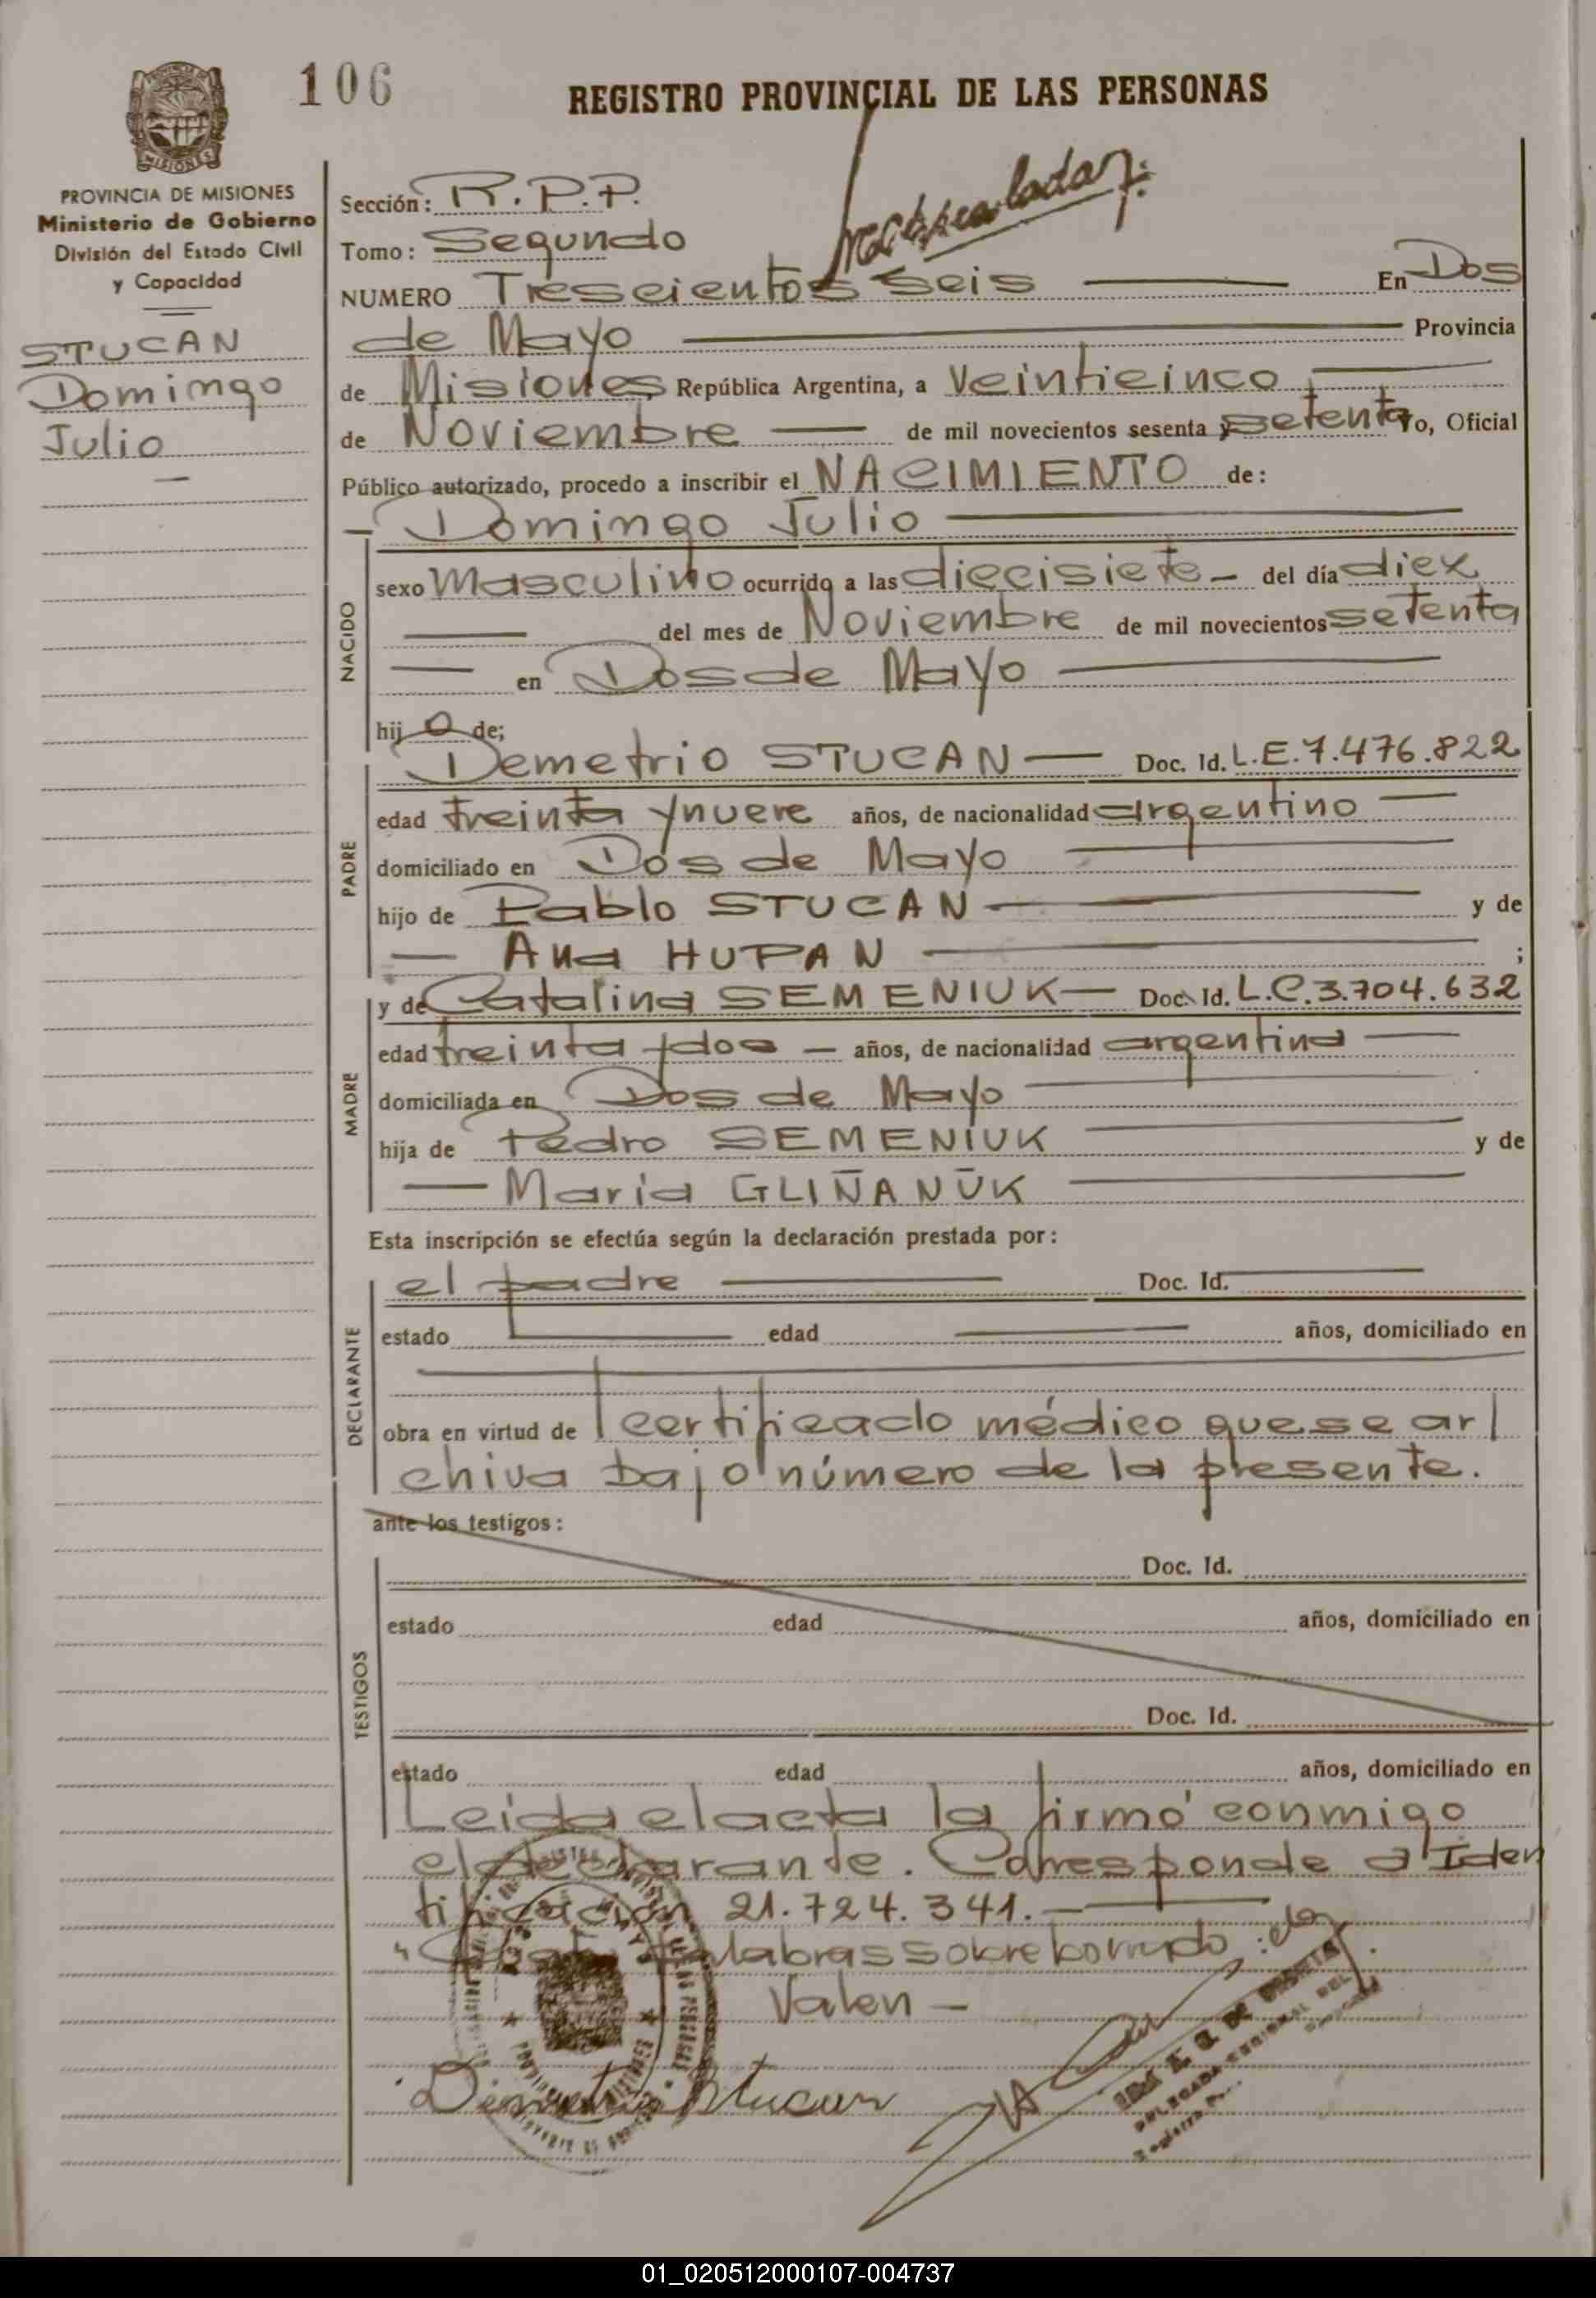 106
REGISTRO PROVINCIAL DE LAS PERSONAS
MISIONES
PROVINCIA DE MISIONES
Ministerio de Gobierno
División del Estado Civil
y Capacidad
STUCAN
Domingo
Julio
Sección: R.P.P.
Tomo: Segundo
NUMERO Trescientos seis En Dos
de Mayo Provincia
de Misiones República Argentina, a Veinticinco
de Noviembre de mil novecientos sesenta y setenta Yo, Oficial
Público autorizado, procedo a inscribir el NACIMIENTO de:
Domingo Julio
NACIDO
sexo Masculino ocurrido a las diecisiete del día diez
del mes de Noviembre de mil novecientos setenta
en Dos de Mayo
hijo de;
PADRE
Demetrio STUCAN Doc. Id. L.E.7.476.822
edad treinta y nueve años, de nacionalidad argentino
domiciliado en Dos de Mayo
hijo de Pablo STUCAN y de
Ana HUPAN ;
MADRE
y de Catalina SEMENIUK Doc. Id. L.C.3.704.632
edad treinta y dos años, de nacionalidad argentina
domiciliada en Dos de Mayo
hija de Pedro SEMENIUK y de
María GLIÑAÑUK
Esta inscripción se efectúa según la declaración prestada por:
DECLARANTE
el padre Doc. Id.
estado edad años, domiciliado en
obra en virtud de certificado médico que se ar
chiva bajo número de la presente.
ante los testigos:
TESTIGOS
Doc. Id.
estado edad años, domiciliado en
Doc. Id.
estado edad años, domiciliado en
Leida el acta la firmó conmigo
el declarante. Corresponde a Iden
tificación 21.724.341.
palabras sobre borrado:
Valen
Demetrio Stucan
01_020512000107-004737